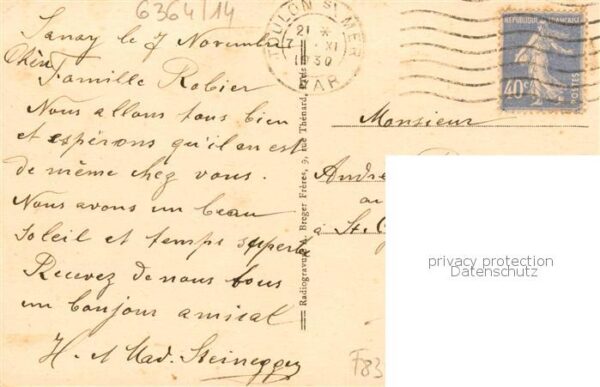 6364/14
Sanary le 7 Novembre
Chère Famille Robier
Nous allons tous bien
et espérons qu'il en est
de même chez vous.
Nous avons un beau
soleil et temps superbe
Recevez de nous tous
un bonjour amical
H. et Mad. Steinegger
TOULON S/ MER
21 *
XI
1930
VAR
REPUBLIQUE FRANÇAISE
40c
POSTES
Radiogravure A. Breger Frères, 9, rue Thénard, Paris
Monsieur
André
au
à St.
privacy protection
Datenschutz
F83